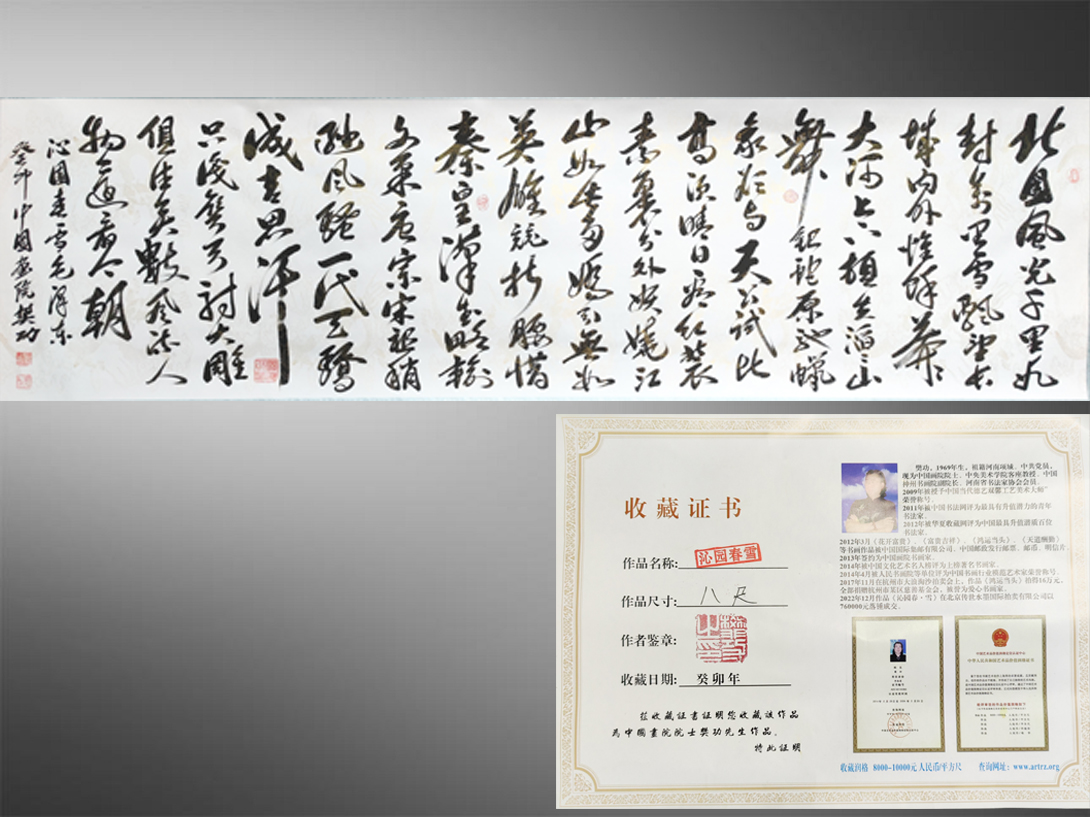 北國風光千里冰
封萬里雪飄望長
城內外惟餘莽々
大河上下頓失滔山
舞銀蛇原馳蠟
象欲与天公試比
高須晴日看紅裝
素裹分外妖嬈江
山如此多嬌引無數
英雄競折腰惜
秦皇漢武略輸
文采唐宗宋祖稍
遜風騷一代天驕
成吉思汗
只識彎弓射大雕
俱往矣數風流人
物還看今朝
沁園春雪毛澤東
癸卯中國畫院樊功
收藏证书
作品名称: 沁园春雪
作品尺寸: 八尺
作者鉴章:
收藏日期: 癸卯年
兹收藏证书证明您收藏该作品
为中國畫院院士樊功先生作品。
特此证明
樊功，1969年生，祖籍河南项城，中共党员，
现为中国画院院士、中央美术学院客座教授、中国
神州书画院副院长、河南省书法家协会会员。
2009年被授予中国当代德艺双馨工艺美术大师"
荣誉称号。
2011年被中国书法网评为最具有升值潜力的青年
书法家。
2012年被华夏收藏网评为中国最具升值潜质百位
书法家。
2012年3月《花开富贵》、《富贵吉祥》、《鸿运当头》、《天道酬勤》
等书画作品被中国国际集邮有限公司、中国邮政发行邮票、邮币、明信片。
2013年签约为中国画院书画家。
2014年被中国文化艺术名人榜评为上榜著名书画家。
2014年4月被人民书画院等单位评为中国书画行业模范艺术家荣誉称号。
2017年11月在杭州市大浪淘沙拍卖会上，作品《鸿运当头》拍得16万元，
全部捐赠杭州市某区慈善基金会，被誉为爱心书画家。
2022年12月作品《沁园春·雪》在北京传世水墨国际拍卖有限公司以
760000元落锤成交。
收藏润格 8000-10000元人民币/平方尺 查询网址：www.artrz.org